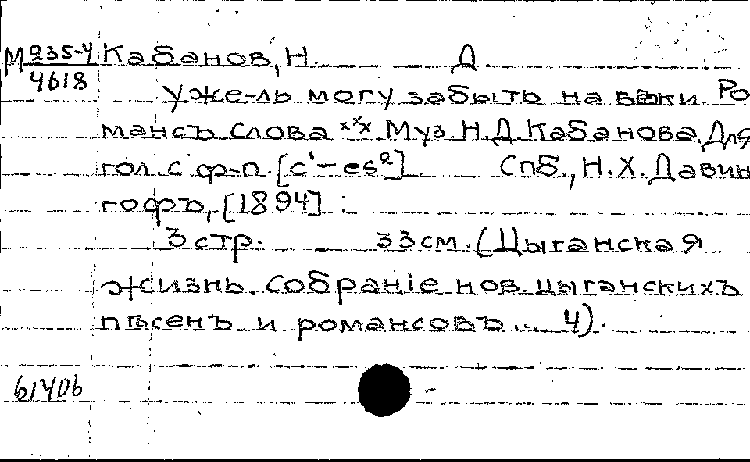 М 935-4 Кабанов, Н. Д
4618
Уже-ль могу забыть на веки Ро
мансъ Слова xxx Муз. Н.Д. Кабанова. Для
гол. с ф-п. [c'-es²] Спб., Н.Х. Давин
гофъ, [1894]
3 стр. 33 см. (Цыганская
жизнь. Собраніе нов. цыганскихъ
пѣсенъ и романсовъ... 4).